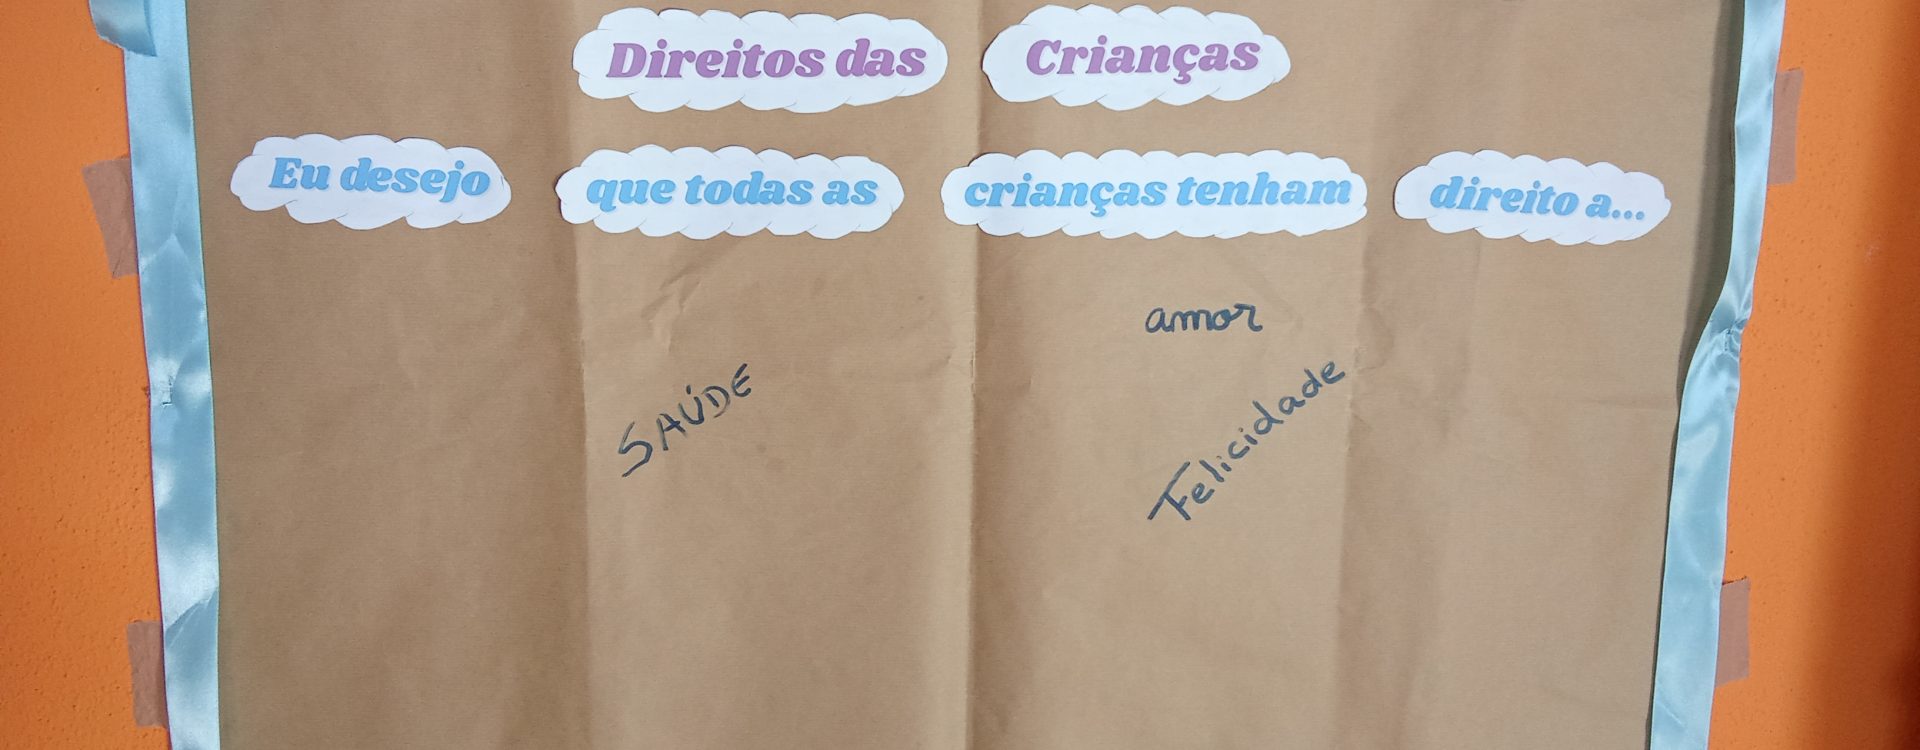 Direitos das Crianças
Eu desejo que todas as crianças tenham direito a...
amor
SAÚDE
Felicidade